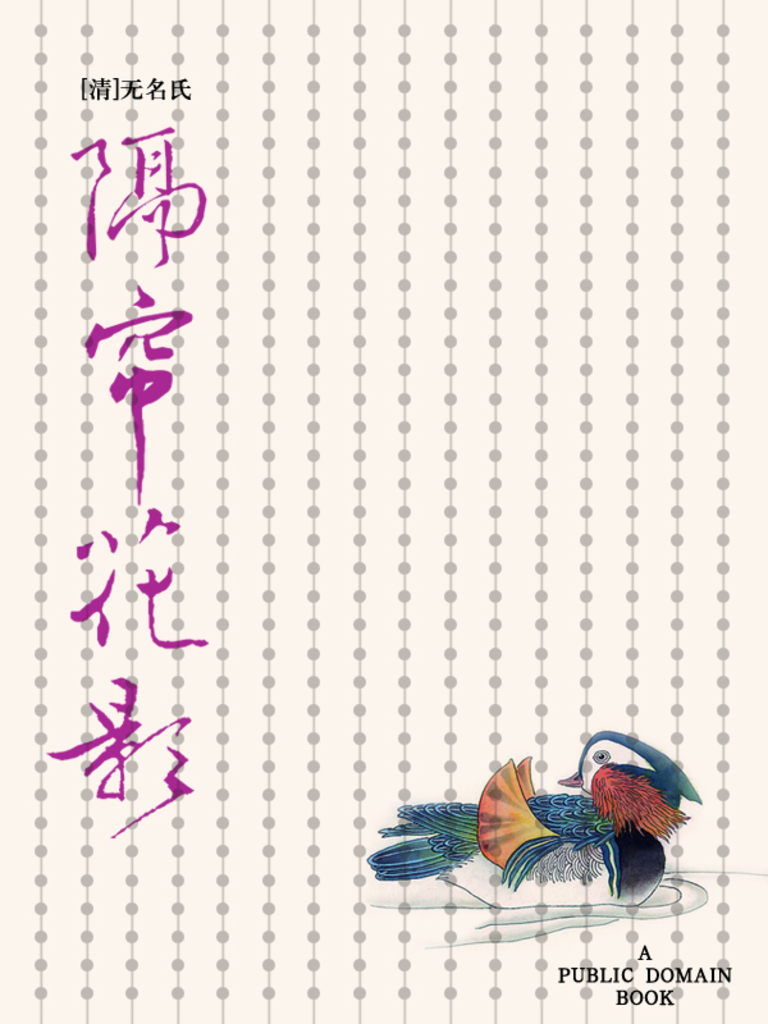 [清]无名氏
隔帘花影
A
PUBLIC DOMAIN
BOOK